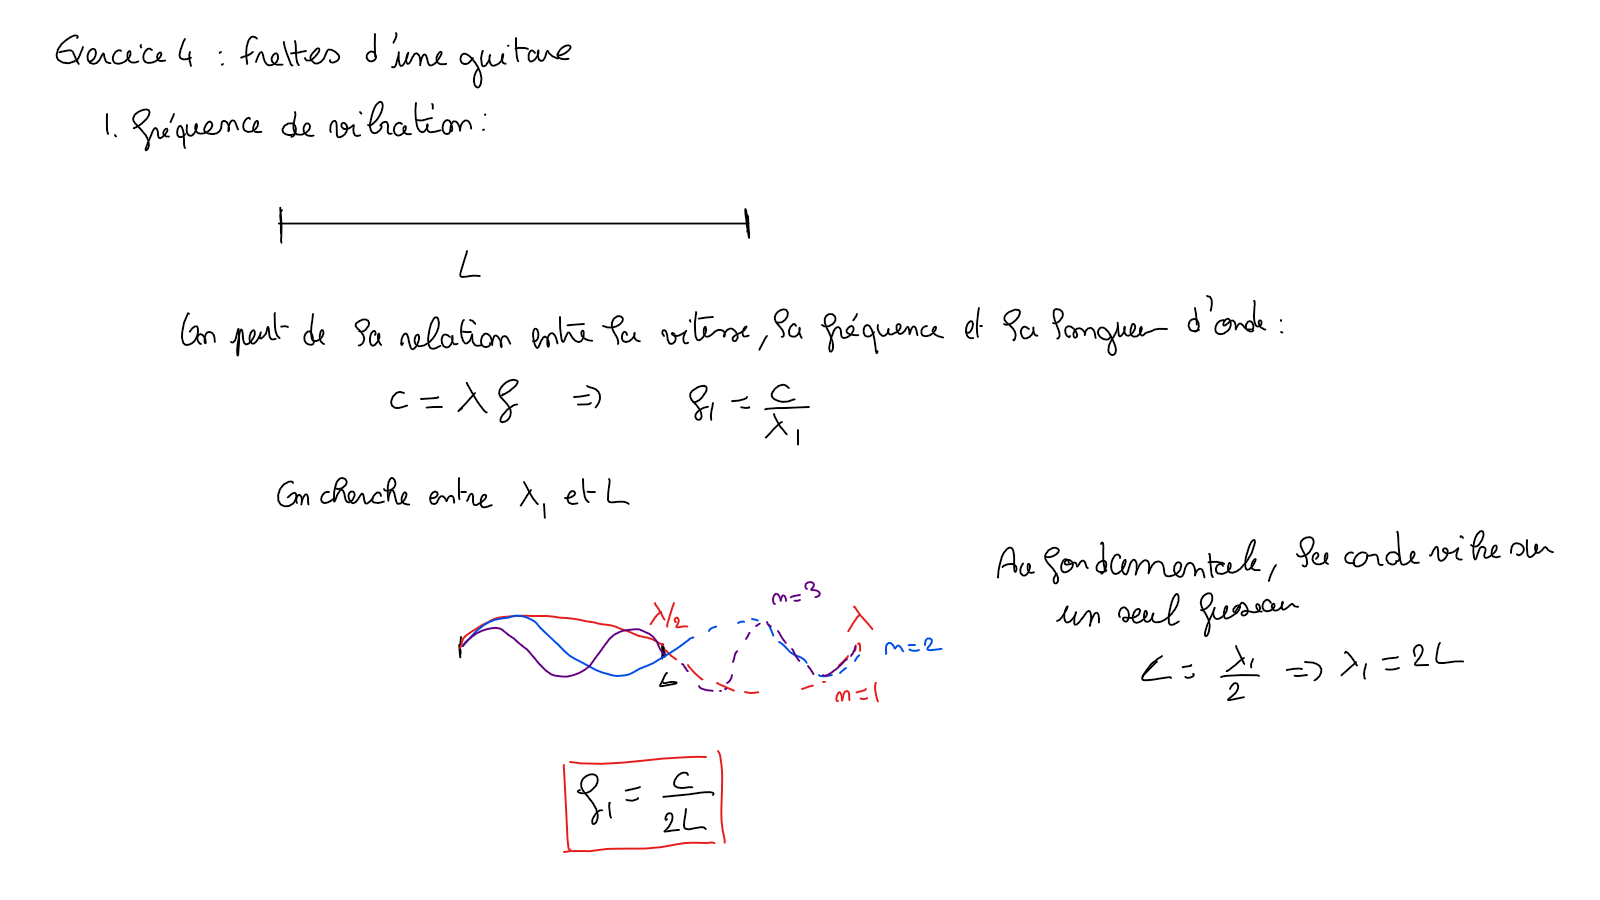 Exercice 4 : frettes d'une guitare
1. fréquence de vibration :
L
On part de la relation entre la vitesse, la fréquence et la longueur d'onde :
c = λ f => f₁ = c/λ₁
On cherche entre λ₁ et L
Au fondamentale, la corde vibre sur
un seul fuseau
L = λ₁/2 => λ₁ = 2L
n=3
λ/2
λ
n=2
L
n=1
f₁ = c/2L